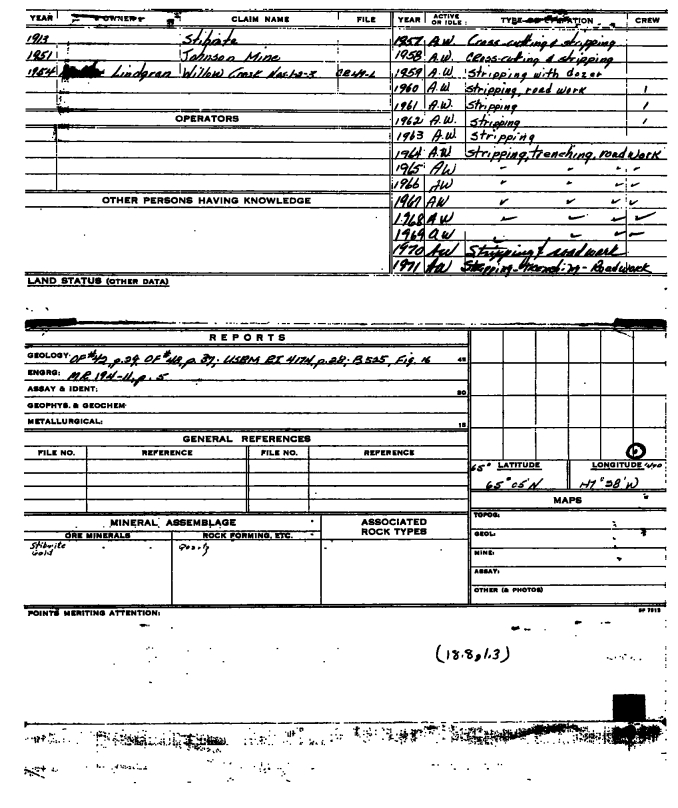 YEAR OWNER CLAIM NAME FILE YEAR ACTIVE OR IDLE: TYPE OF OPERATION CREW
1913 Stibnite 1957 A.W. Cross-cutting & stripping
1951 Johnson Mine 1958 A.W. Cross-cutting & stripping
1954 Lindgren Willow Creek Nos 1-2-3 1959 A.W. Stripping with dozer
1960 A.W. Stripping, road work 1
1961 A.W. Stripping 1
OPERATORS 1962 A.W. Stripping 1
1963 A.W. Stripping
1964 A.W. Stripping, trenching, road work
1965 AW " " "
1966 AW " " "
OTHER PERSONS HAVING KNOWLEDGE 1967 AW " " "
1968 AW " " "
1969 AW " " "
1970 AW Stripping & road work
1971 AW Stripping - trenching - Roadwork
LAND STATUS (OTHER DATA)
REPORTS
GEOLOGY: OF #42, p.29, OF #48, p. 37; USBM RI 4174, p.28; B 525, Fig. 16 45
ENGRG: MR 194-11, p. 5
ASSAY & IDENT: 30
GEOPHYS. & GEOCHEM:
METALLURGICAL: 15
GENERAL REFERENCES
FILE NO. REFERENCE FILE NO. REFERENCE
65° LATITUDE LONGITUDE
65°05'N 147°38'W
MAPS
MINERAL ASSEMBLAGE ASSOCIATED ROCK TYPES
ORE MINERALS ROCK FORMING, ETC.
Stibnite Quartz
Gold
TOPOG:
GEOL:
MINE:
ASSAY:
OTHER (& PHOTOS)
POINTS MERITING ATTENTION:
(18.8, 1.3)